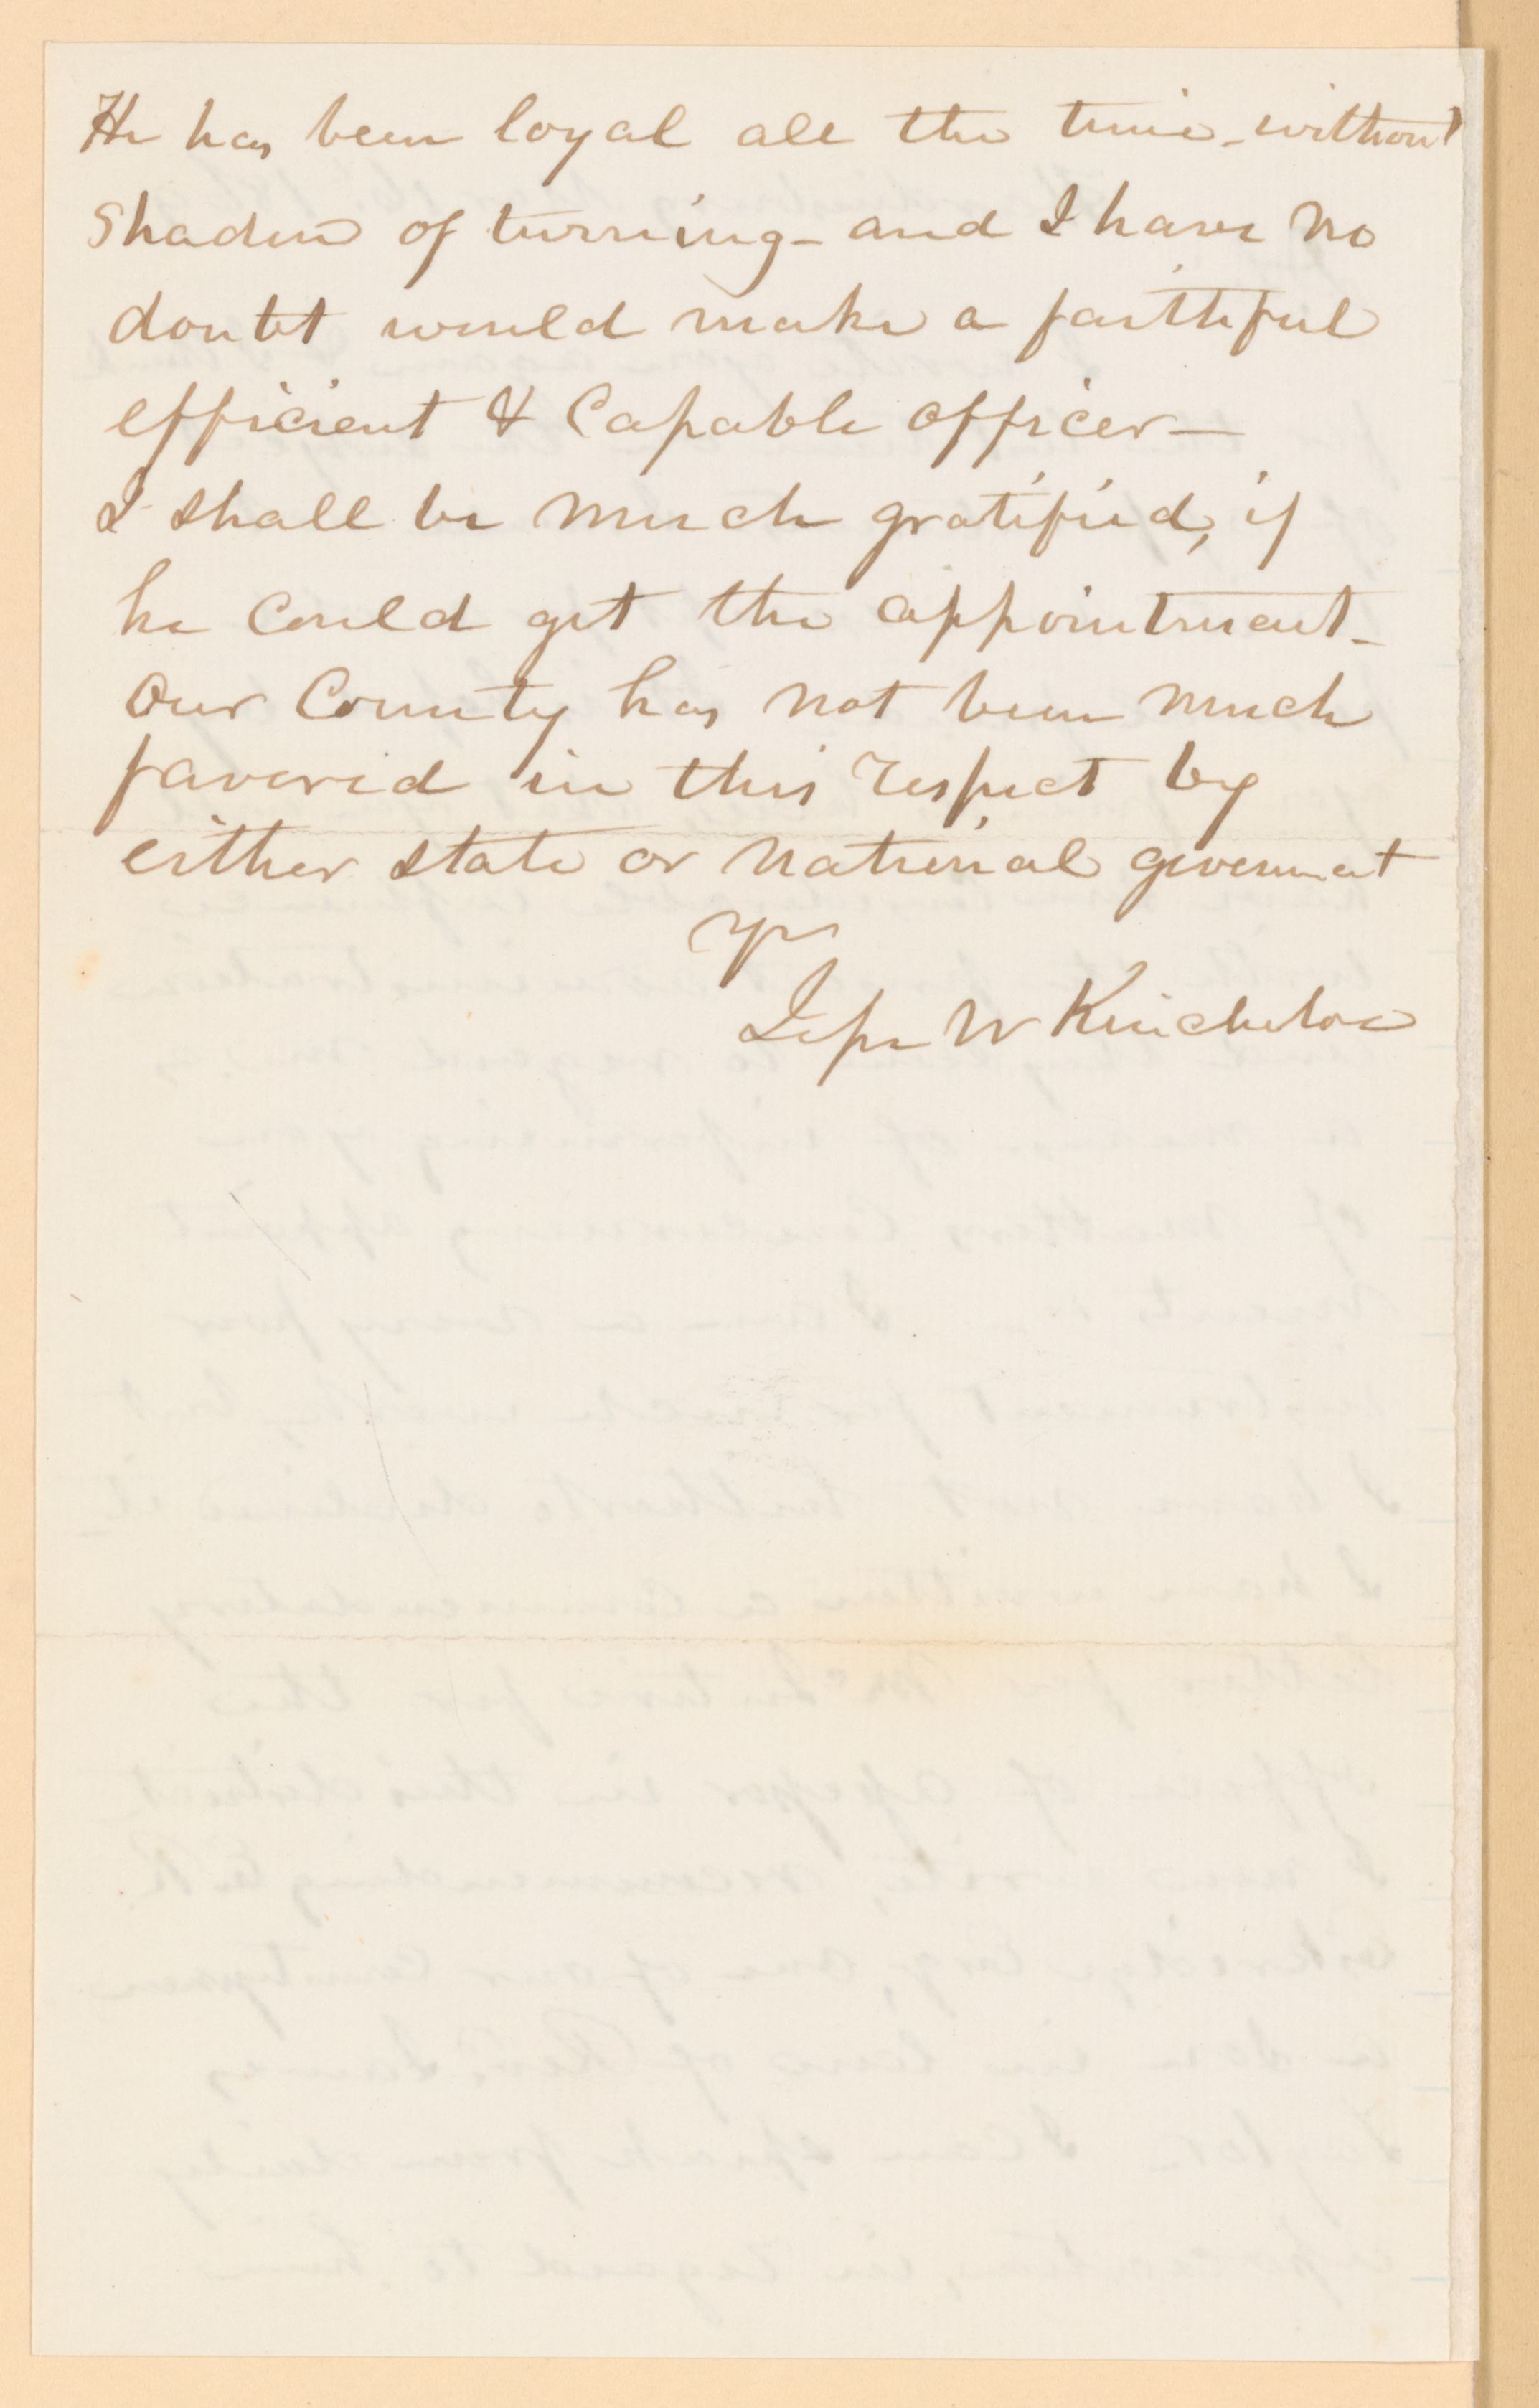 He has been loyal all the time - without
Shadow of turning - and I have no
doubt would make a faithful
efficient & Capable officer -
I shall be much gratified, if
he could get the appointment -
Our County has not been much
favored in this respect by
either state or national government
Yrs
Jesse W Kincheloe